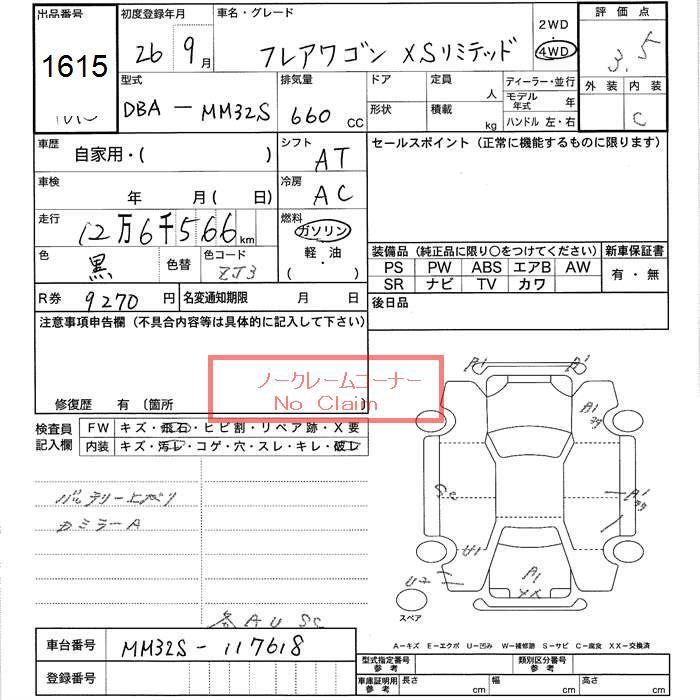 出品番号 初度登録年月 車名・グレード 2WD 評価点
1615 26 9月 フレアワゴン XSリミテッド ・ 4WD 3.5
型式 排気量 ドア 定員 人 ディーラー・並行 外装 内装
DBA - MM32S 660 CC 形状 積載 kg モデル年式 年 C
ハンドル 左・右
車歴 自家用・( ) シフト AT セールスポイント(正常に機能するものに限ります)
車検 年 月 ( 日) 冷房 AC
走行 12万6千566 km 燃料 ガソリン
色 黒 色替 色コード ZJ3 軽・油 ( ・ )
装備品(純正品に限り○をつけてください) 新車保証書
PS PW ABS エアB AW 有・無
SR ナビ TV カワ
R券 9270円 名変通知期限 月 日 後日品
注意事項申告欄(不具合内容等は具体的に記入して下さい)
ノークレームコーナー
No Claim
修復歴 有 〔箇所 〕
検査員記入欄 FW キズ・飛石・ヒビ割・リペア跡・X要
内装 キズ・汚レ・コゲ・穴・スレ・キレ・破レ
バッテリー上がり
カミラーA
A1 A1
A1
A1
U1 U2
A1
スペア
AU SC
車台番号 MM32S-117618
登録番号
A-キズ E-エクボ U-凹み W-補修跡 S-サビ C-腐食 XX-交換済
型式指定番号 参考 類別区分番号 参考
車庫証明用 参考 長さ cm 幅 cm 高さ cm